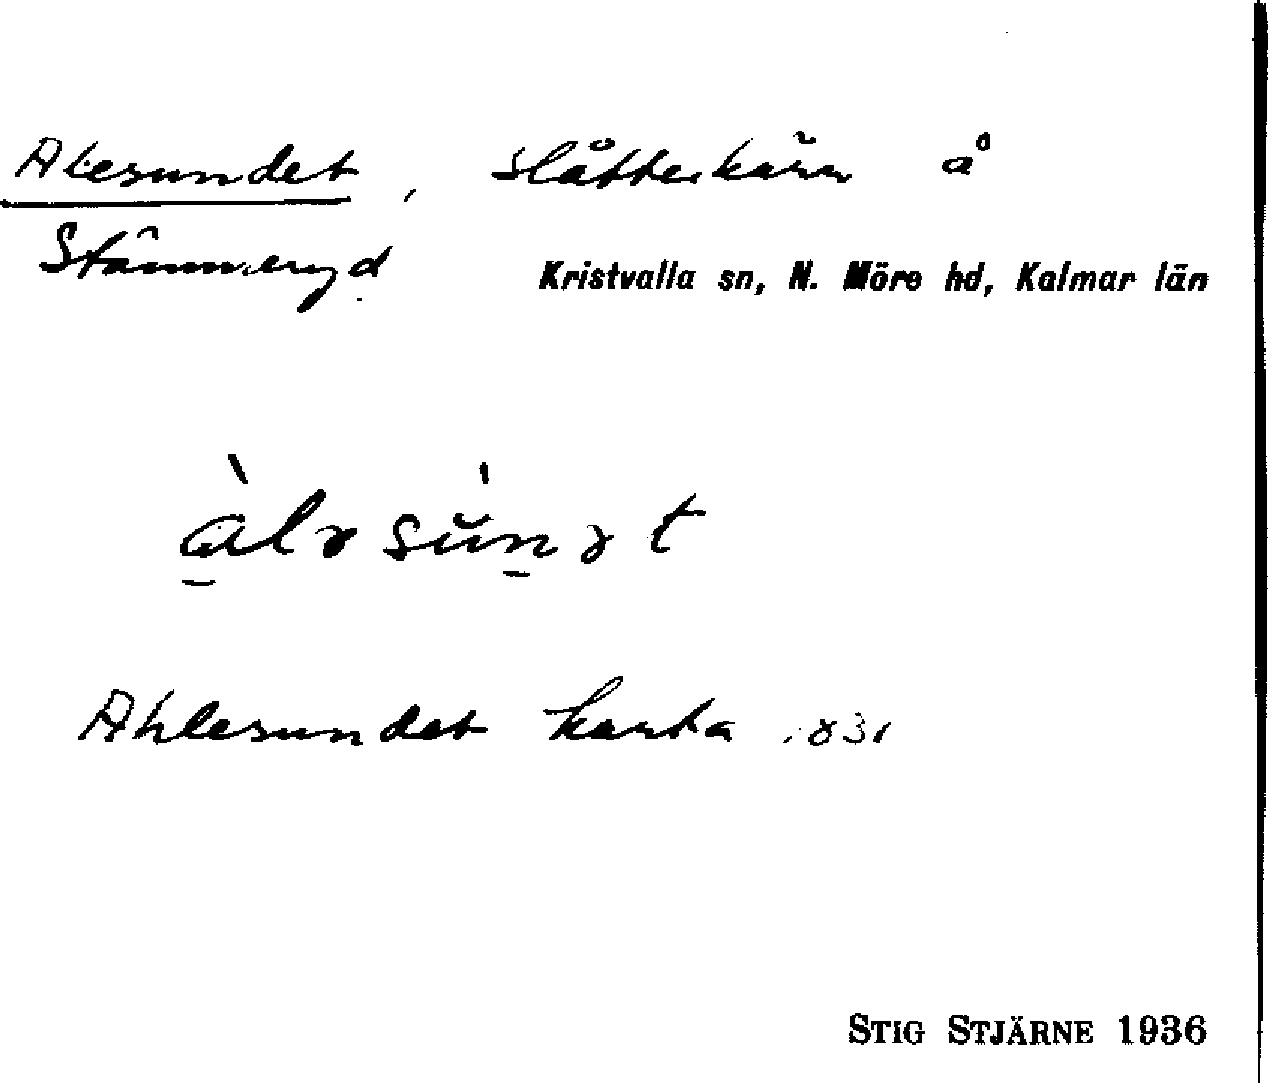 Alesundet, slåtterkärr å
Stämmeryd
Kristvalla sn, N. Möre hd, Kalmar län
Ahlesundet karta 1831
STIG STJÄRNE 1936